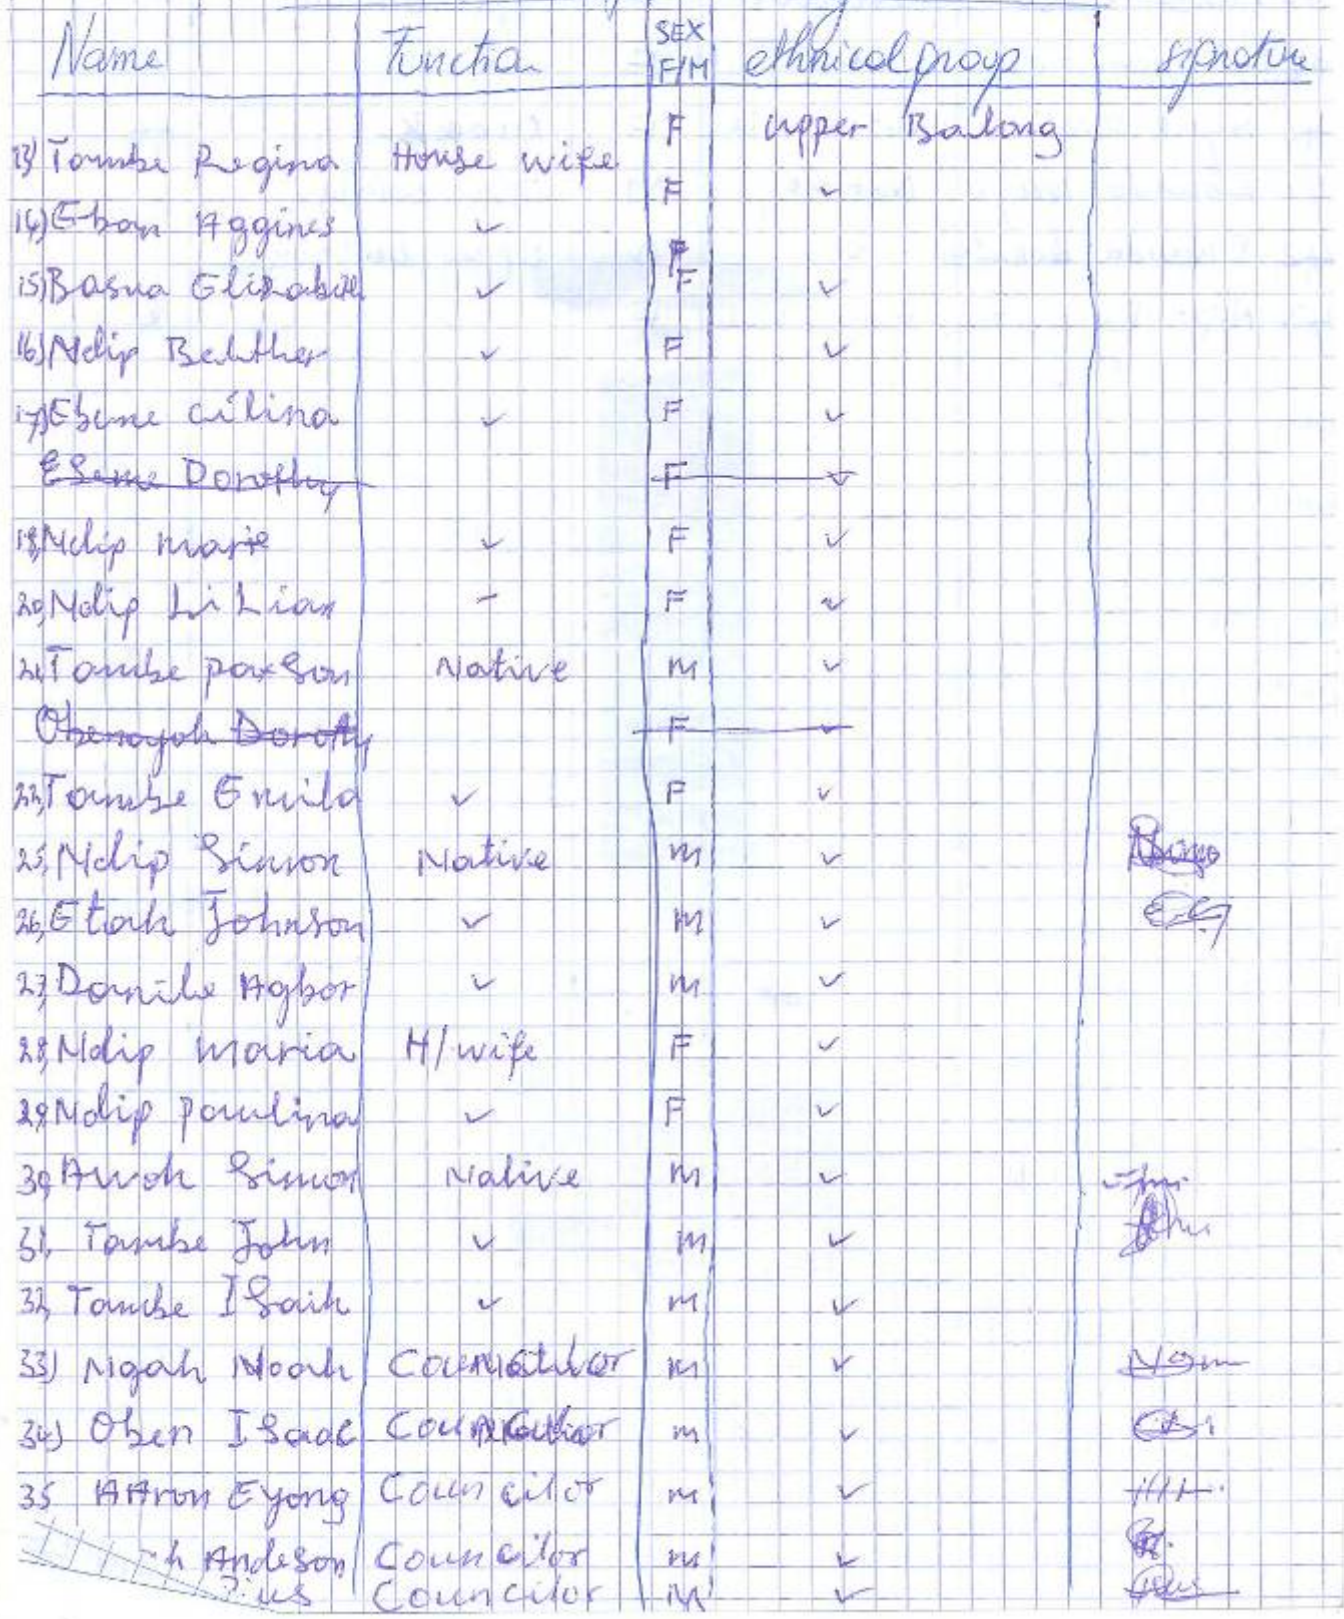 Name Function SEX F/M ethnical group signature
13) Tambe Regina House wife F upper Balong
14) Eban Aggines ✓ F ✓
15) Basua Elizabie ✓ F ✓
16) Ndip Belther ✓ F ✓
17) Ebune Cilina ✓ F ✓
Eseme Dorothy F ✓
18, Ndip marie ✓ F ✓
20, Ndip LiLian - F ✓
21, Tambe paxson Native M ✓
Obenayoh Dorothy F ✓
22, Tambe Emila ✓ F ✓
25, Ndip Simon Native M ✓
26, Etah Johnson ✓ M ✓
27, Danile Agbor ✓ M ✓
28, Ndip maria H/wife F ✓
29, Ndip paulina ✓ F ✓
30, Awoh Simon Native M ✓
31, Tambe John ✓ M ✓
32, Tambe ISaih ✓ M ✓
33) Ngah Noah M ✓
34) Oben ISaac M ✓
35 AAron Eyong Councilor M ✓
h Andeson Councilor M ✓
ius Councilor M ✓